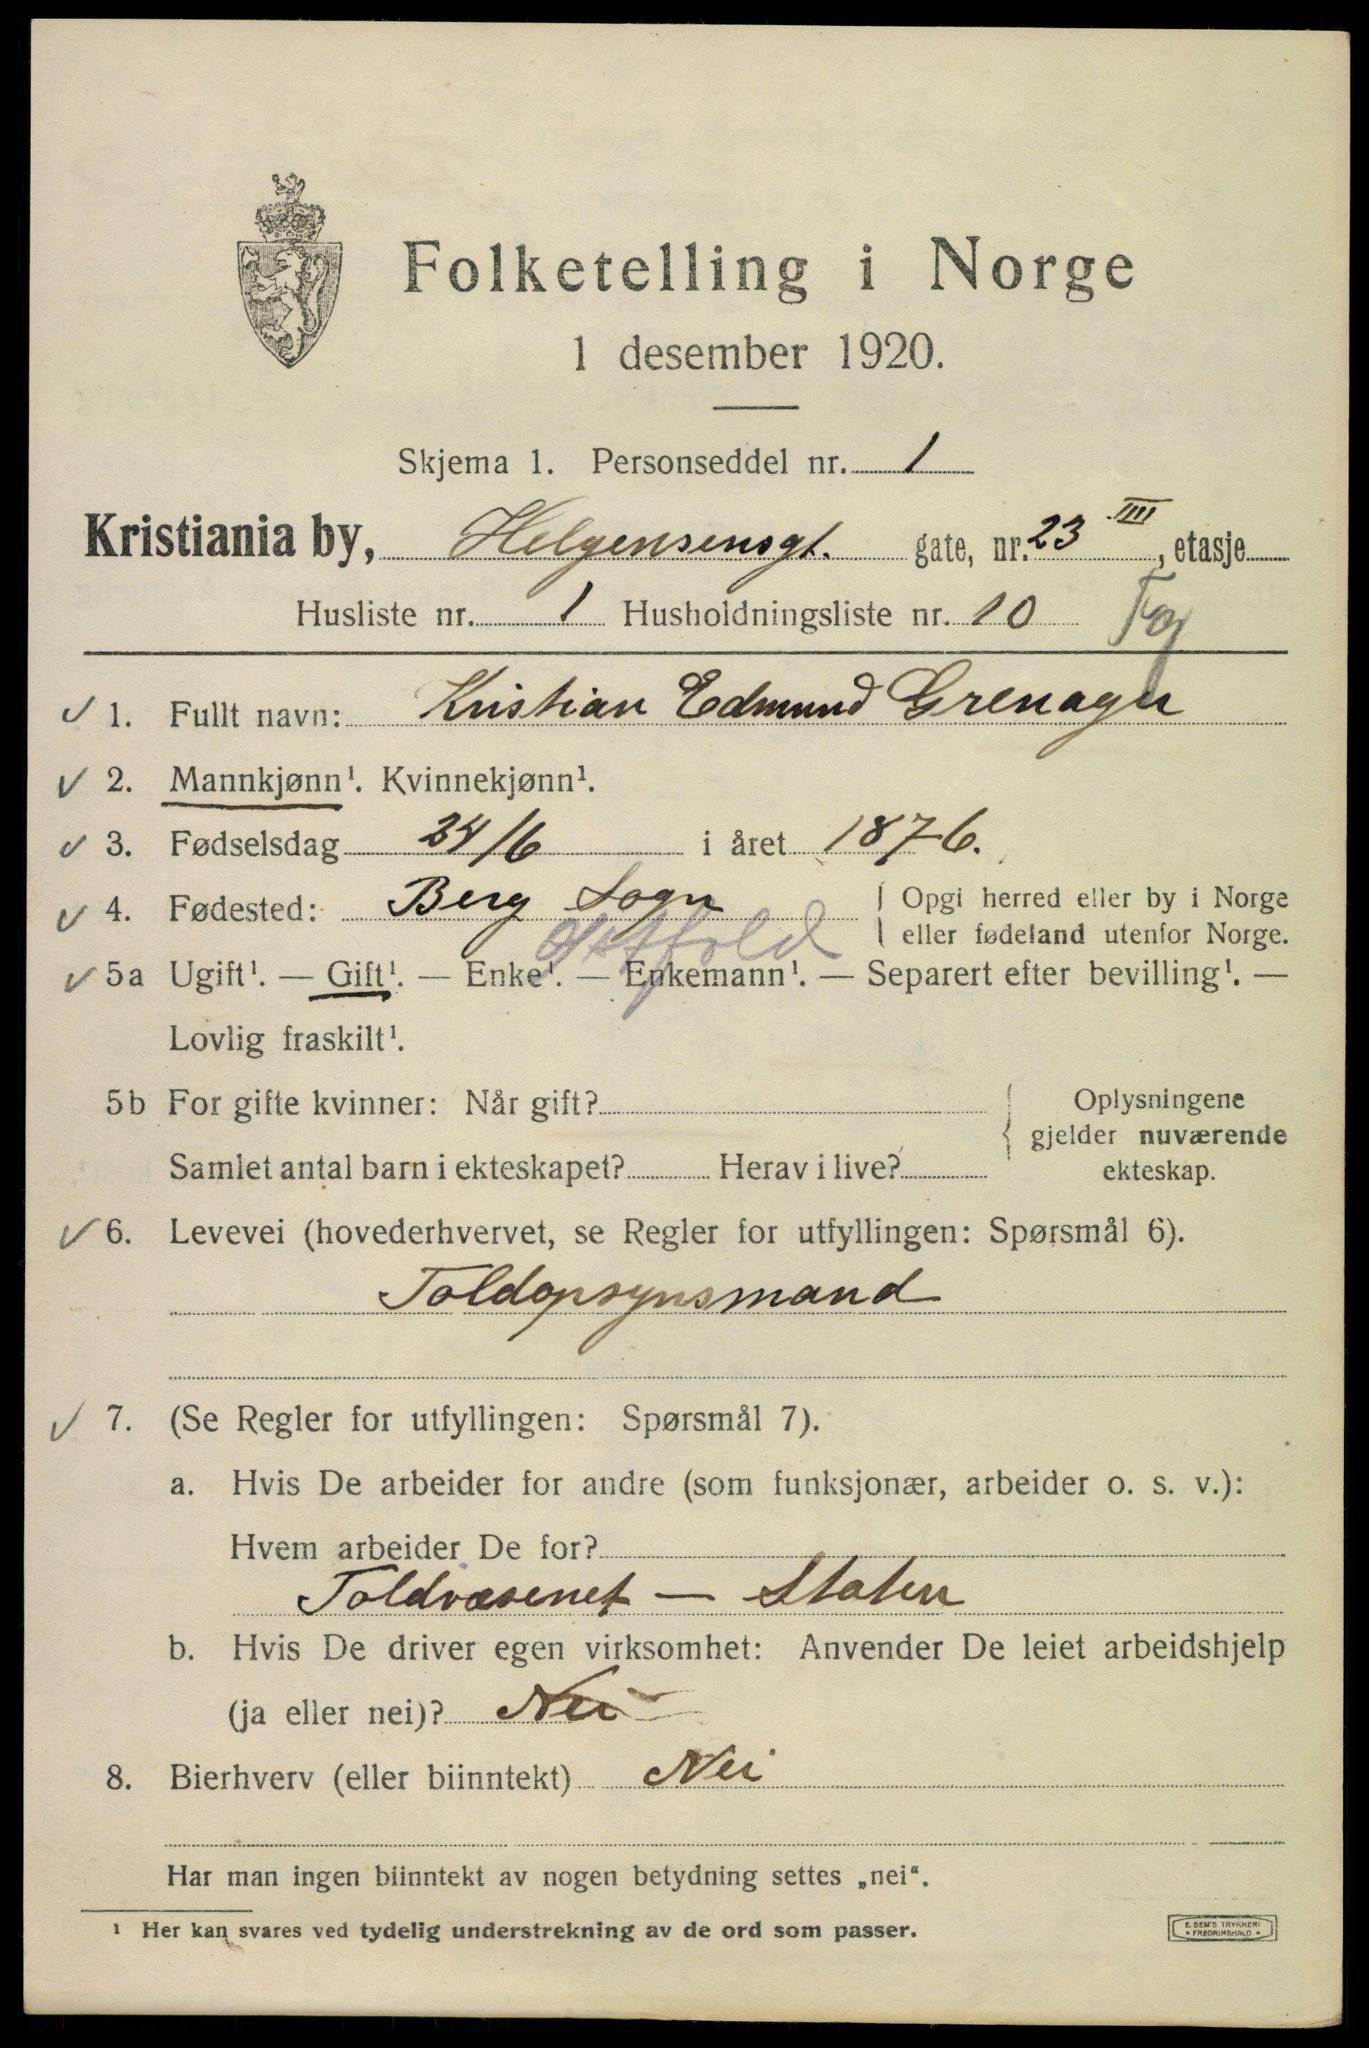 Folketelling i Norge
1 desember 1920.
Skjema 1. Personseddel nr. 1
Kristiania by, Helgensensgt. gate, nr. 23 III, etasje
Husliste nr. 1 Husholdningsliste nr. 10
1. Fullt navn: Kristian Edmund Grenager
2. Mannkjønn¹. Kvinnekjønn¹.
3. Fødselsdag 24/6 i året 1876.
4. Fødested: Berg Sogn Opgi herred eller by i Norge
Østfold eller fødeland utenfor Norge.
5a Ugift¹. — Gift¹. — Enke¹. — Enkemann¹. — Separert efter bevilling¹. —
Lovlig fraskilt¹.
5b For gifte kvinner: Når gift? Oplysningene
gjelder nuværende
Samlet antal barn i ekteskapet? Herav i live? ekteskap.
6. Levevei (hovederhvervet, se Regler for utfyllingen: Spørsmål 6).
Toldopsynsmand
7. (Se Regler for utfyllingen: Spørsmål 7).
a. Hvis De arbeider for andre (som funksjonær, arbeider o. s. v.):
Hvem arbeider De for?
Toldvæsenet — Staten
b. Hvis De driver egen virksomhet: Anvender De leiet arbeidshjelp
(ja eller nei)? Nei
8. Bierhverv (eller biinntekt) Nei
Har man ingen biinntekt av nogen betydning settes „nei“.
¹ Her kan svares ved tydelig understrekning av de ord som passer.
E. SEM'S TRYKKERI
* FREDRIKSHALD *